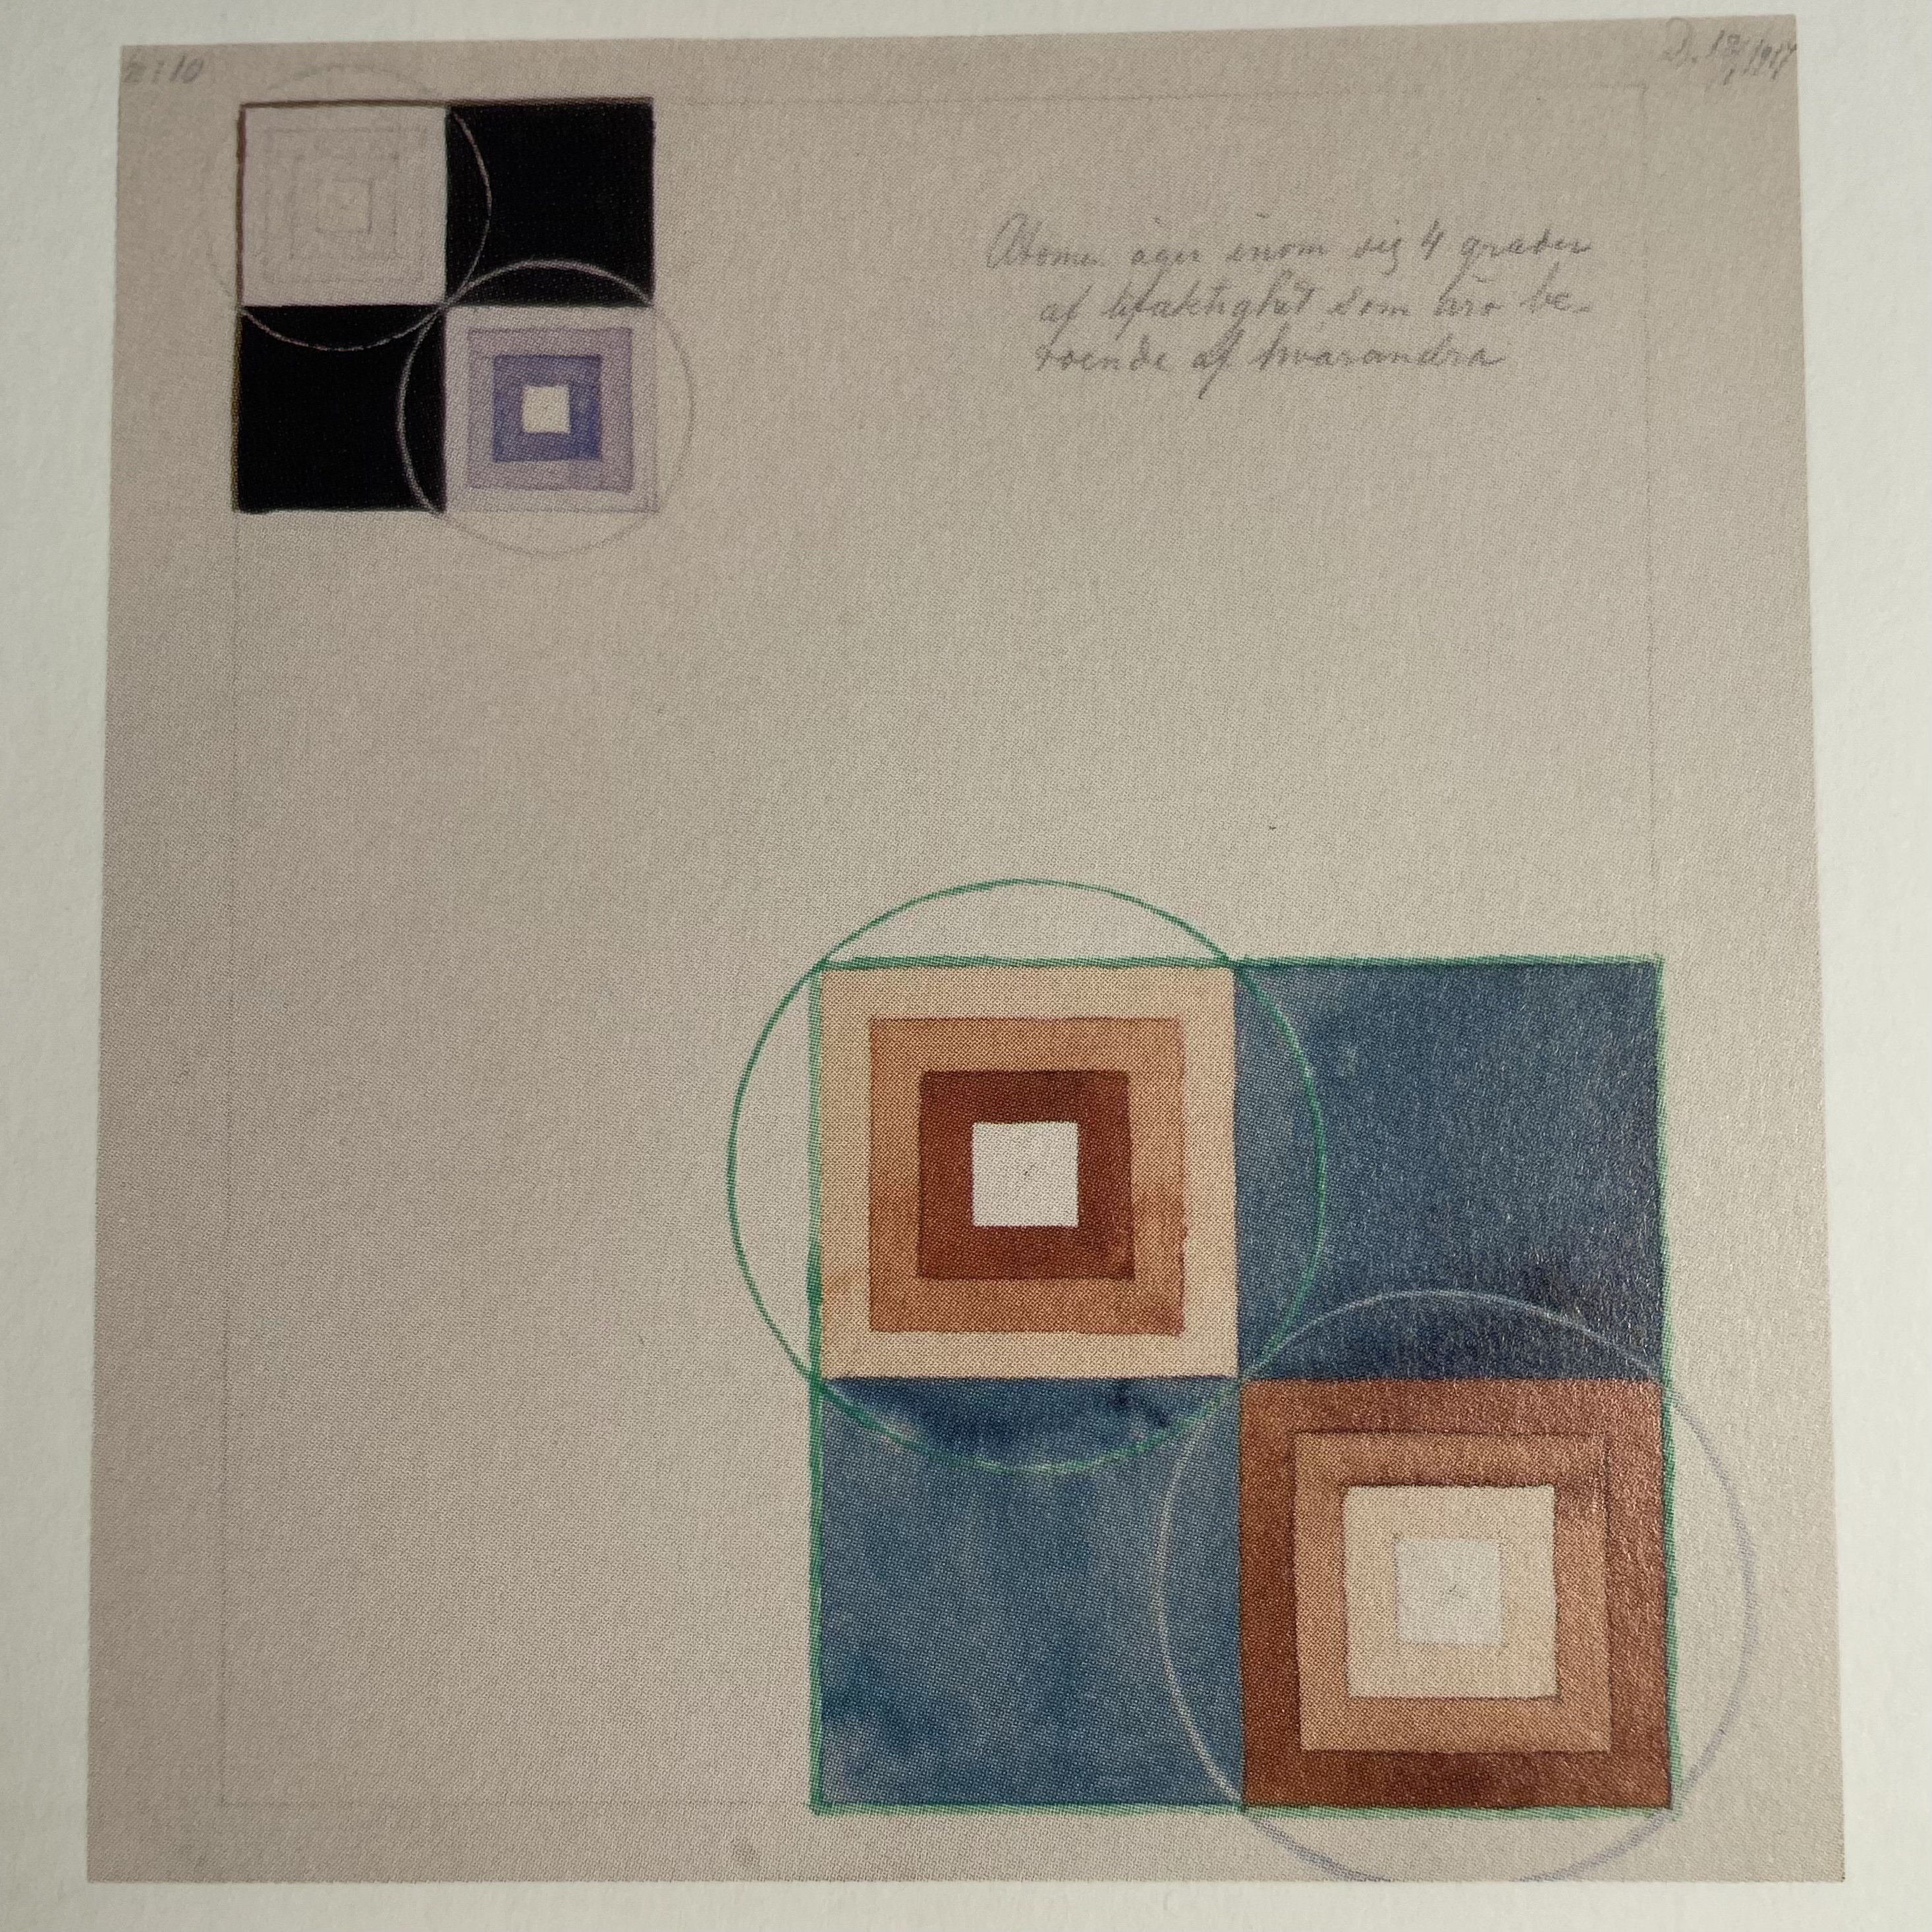 n:10
D. 12/1 1917
Atomen äger inom sig 4 grader
af lifaktighet som äro be-
roende af hvarandra